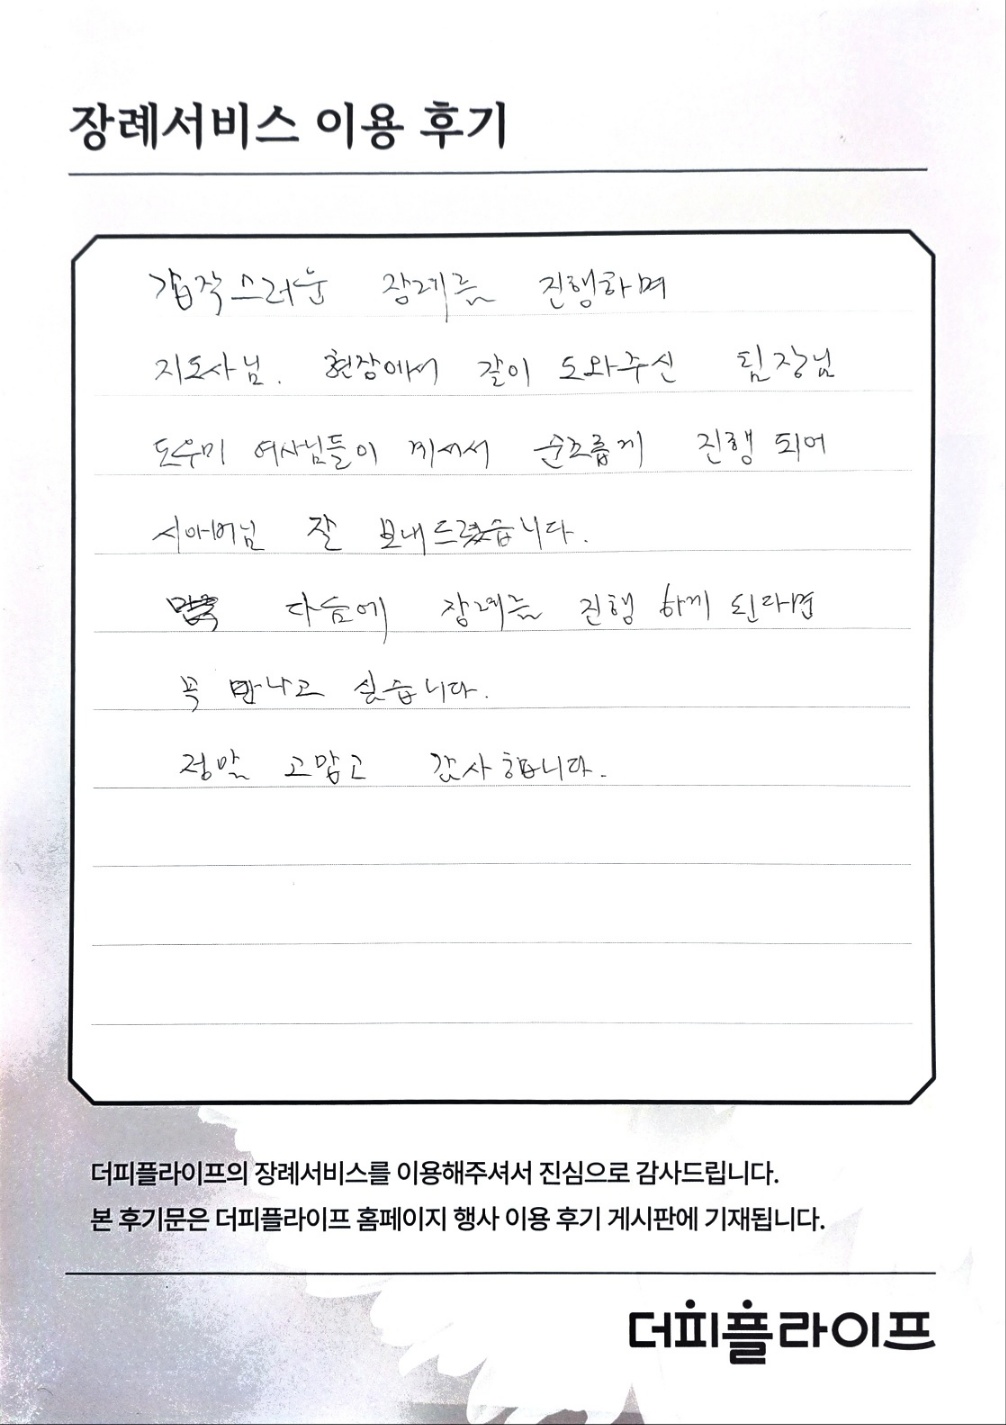 장례서비스 이용 후기
갑작스러운 장례를 진행하며
지도사님. 현장에서 같이 도와주신 팀장님
도우미 여사님들이 계셔서 순조롭게 진행 되어
시아버님 잘 보내드렸습니다.
다음에 장례를 진행 하게 된다면
꼭 만나고 싶습니다.
정말 고맙고 감사합니다.
더피플라이프의 장례서비스를 이용해주셔서 진심으로 감사드립니다.
본 후기문은 더피플라이프 홈페이지 행사 이용 후기 게시판에 기재됩니다.
더피플라이프